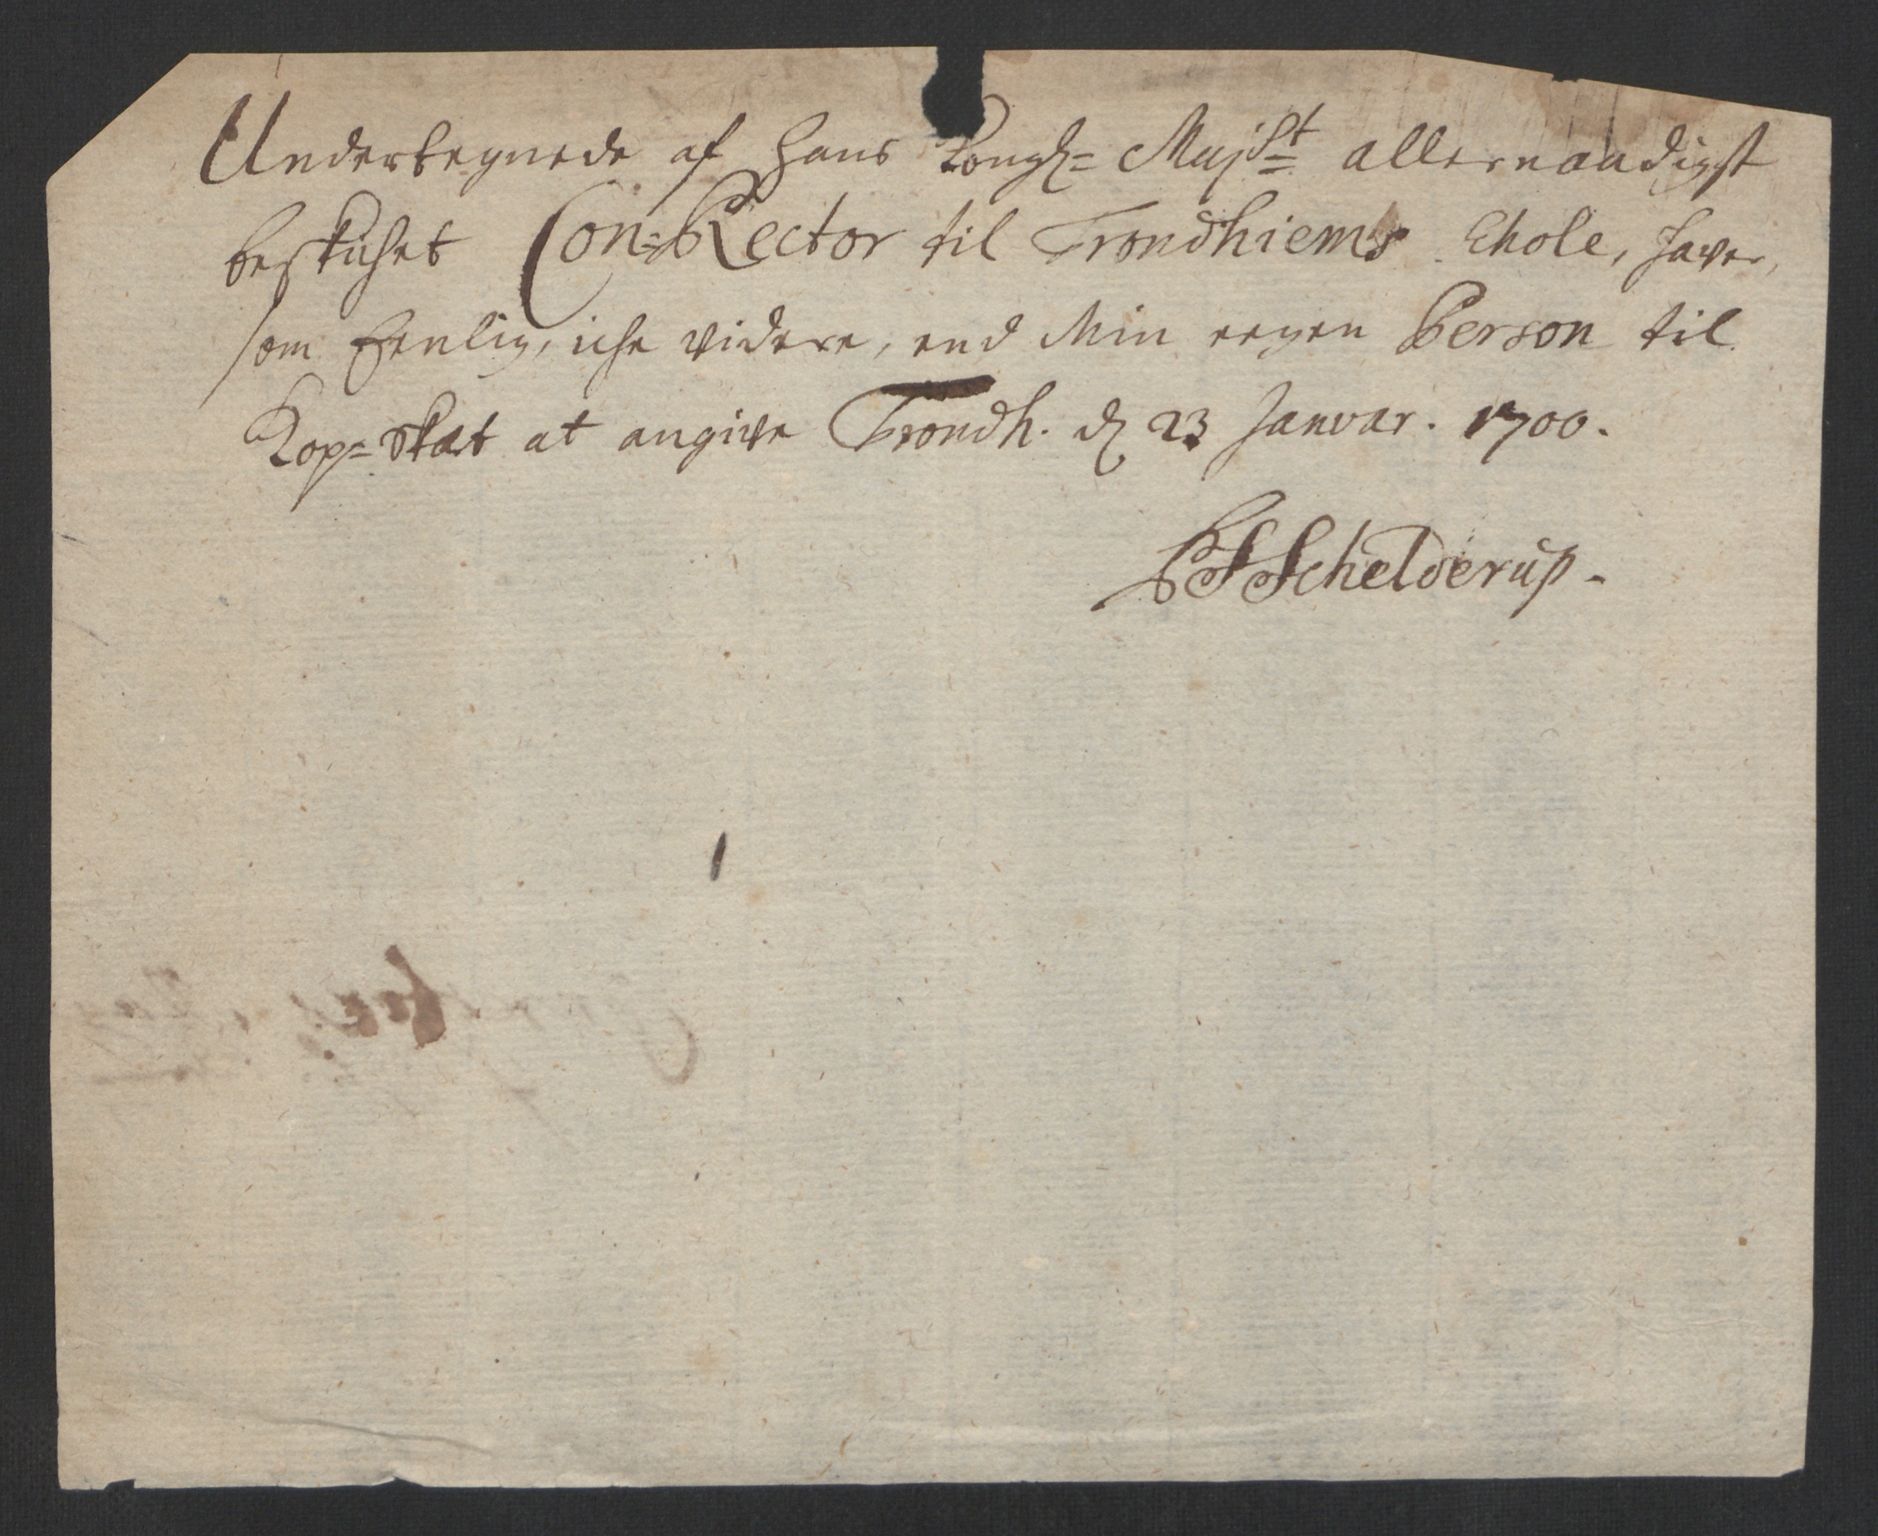 Undertegnede af Hans Kongl= Maj:st allernaadigst
beskichet Con=Rector til Trondhiems Schole, haver,
som Eenlig, iche videre, end Min eegen Person til
Kop=Skat at angive Trondh. d 23 Januar. 1700.
PSSchelderup.